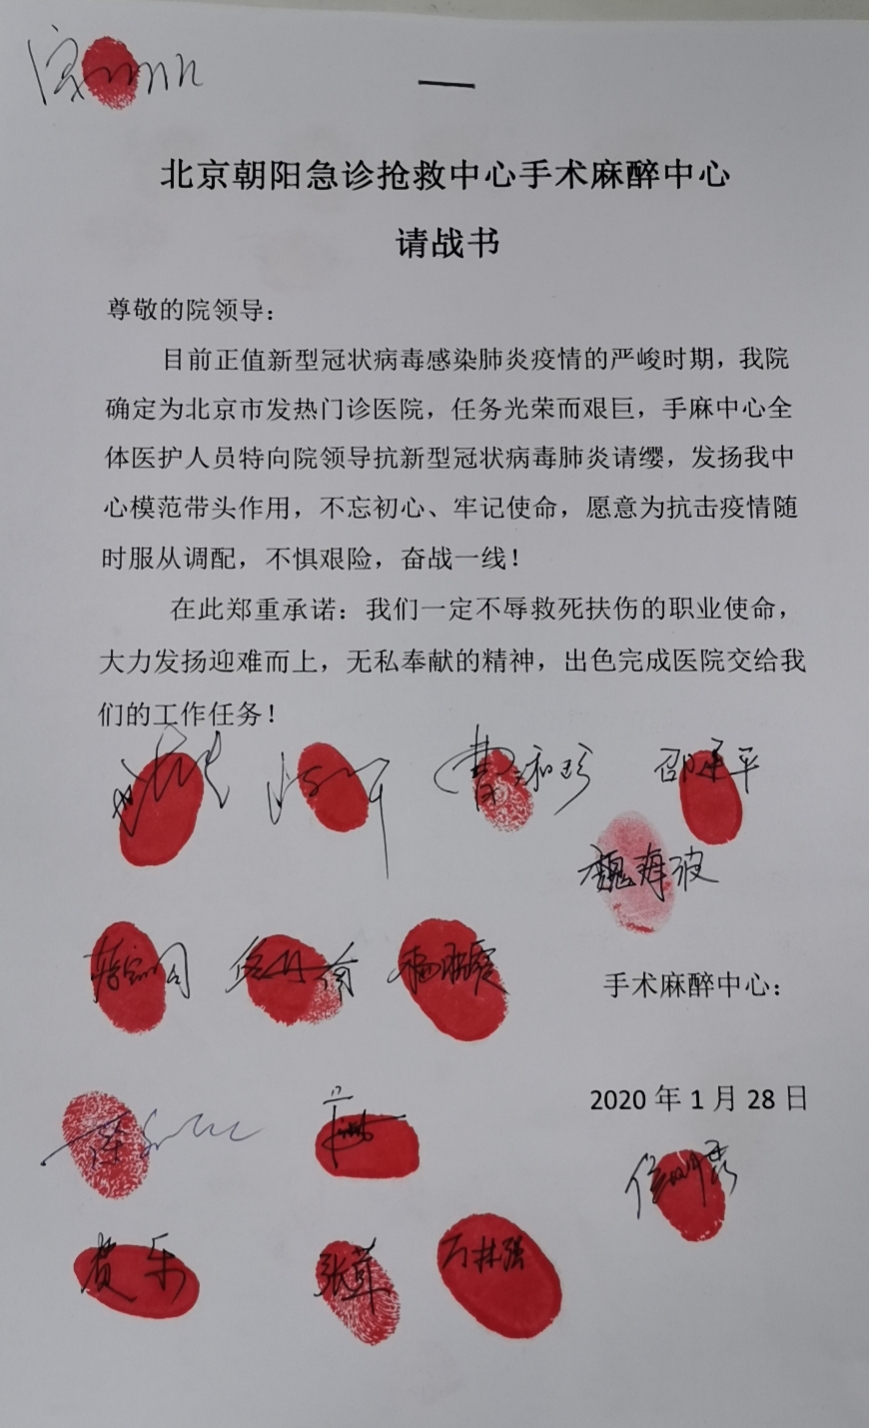 北京朝阳急诊抢救中心手术麻醉中心
请战书
尊敬的院领导：
目前正值新型冠状病毒感染肺炎疫情的严峻时期，我院
确定为北京市发热门诊医院，任务光荣而艰巨，手麻中心全
体医护人员特向院领导抗新型冠状病毒肺炎请缨，发扬我中
心模范带头作用，不忘初心、牢记使命，愿意为抗击疫情随
时服从调配，不惧艰险，奋战一线！
在此郑重承诺：我们一定不辱救死扶伤的职业使命，
大力发扬迎难而上，无私奉献的精神，出色完成医院交给我
们的工作任务！
邵建平
魏海波
手术麻醉中心：
2020 年 1 月 28 日
费乐
张苹
万林强